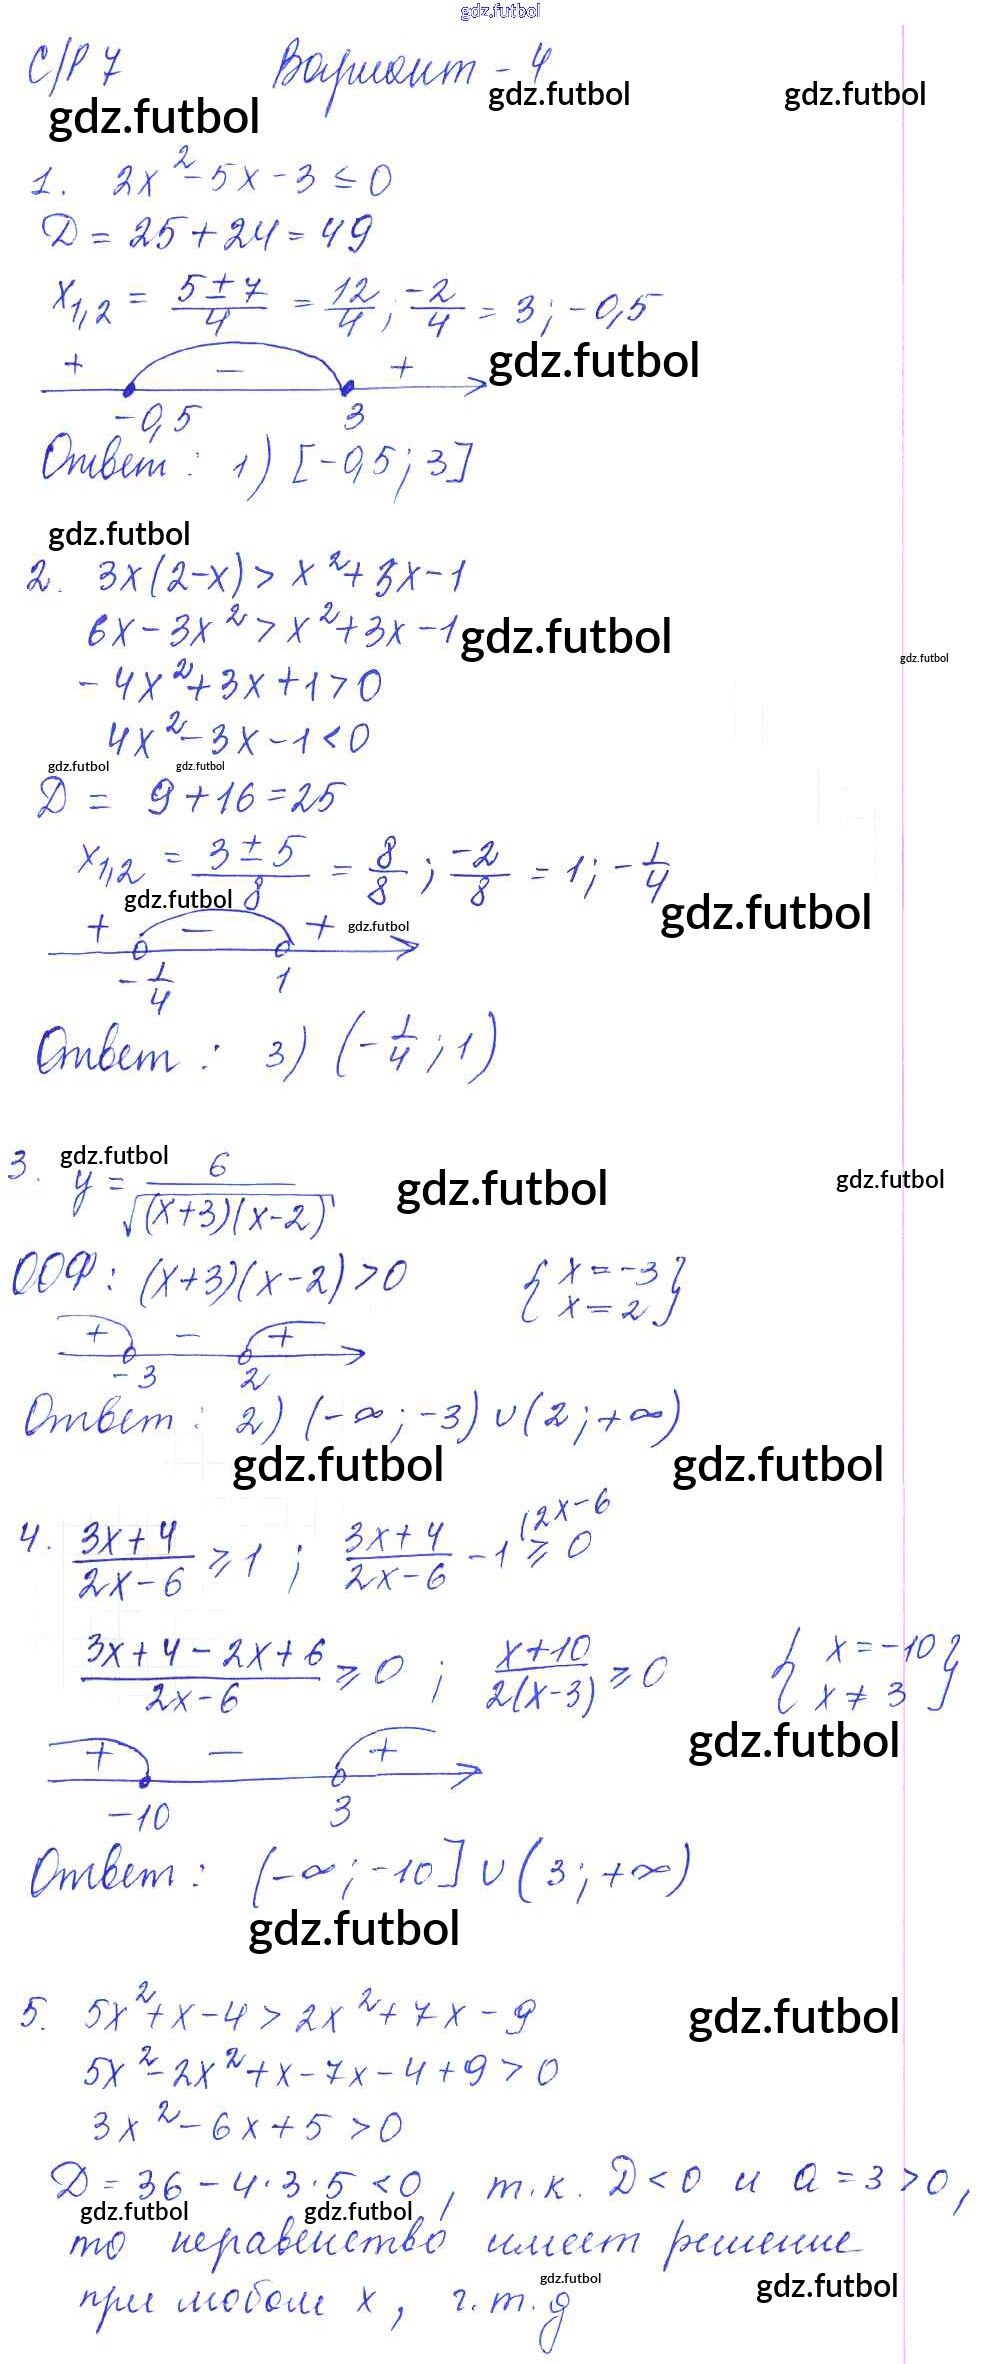 gdz.futbol
С/Р 7 Вариант - 4
gdz.futbol gdz.futbol gdz.futbol
1. 2x² - 5x - 3 ≤ 0
D = 25 + 24 = 49
x1,2 = (5 ± 7)/4 = 12/4 ; -2/4 = 3 ; -0,5
+ - + gdz.futbol
-0,5 3
Ответ : 1) [-0,5 ; 3]
gdz.futbol
2. 3x(2-x) > x² + 3x - 1
6x - 3x² > x² + 3x - 1 gdz.futbol
gdz.futbol
- 4x² + 3x + 1 > 0
4x² - 3x - 1 < 0
gdz.futbol gdz.futbol
D = 9 + 16 = 25
x1,2 = (3 ± 5)/8 = 8/8 ; -2/8 = 1 ; -1/4
gdz.futbol gdz.futbol
+ - + gdz.futbol
-1/4 1
Ответ : 3) (-1/4 ; 1)
gdz.futbol
3. y = 6/√((x+3)(x-2)) gdz.futbol gdz.futbol
ООФ : (x+3)(x-2) > 0 { x = -3
x = 2 }
+ - +
-3 2
Ответ : 2) (-∞ ; -3) ∪ (2 ; +∞)
gdz.futbol gdz.futbol
4. (3x+4)/(2x-6) ≥ 1 ; (3x+4)/(2x-6) - 1 (2x-6 ≥ 0
(3x+4-2x+6)/(2x-6) ≥ 0 ; (x+10)/(2(x-3)) ≥ 0 { x = -10
x ≠ 3 }
gdz.futbol
+ - +
-10 3
Ответ : (-∞ ; -10] ∪ (3 ; +∞)
gdz.futbol
5. 5x² + x - 4 > 2x² + 7x - 9 gdz.futbol
5x² - 2x² + x - 7x - 4 + 9 > 0
3x² - 6x + 5 > 0
D = 36 - 4·3·5 < 0 , т.к. D < 0 и a = 3 > 0,
gdz.futbol gdz.futbol
то неравенство имеет решение
gdz.futbol gdz.futbol
при любом x, ч.т.д